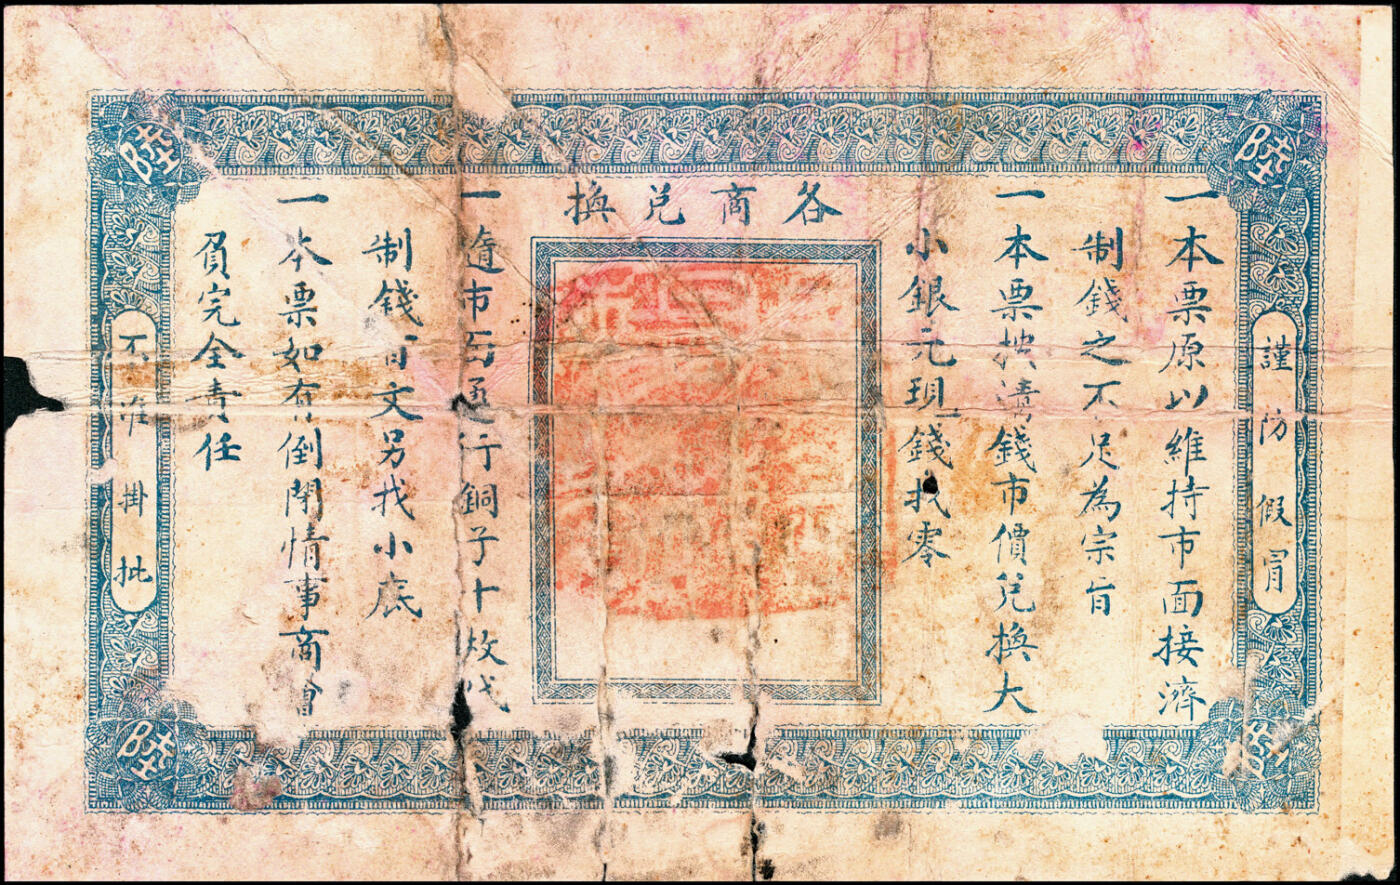 陸
陸
謹防假冒
一本票原以維持市面接濟
制錢之不足為宗旨
一本票按清錢市價兌換大
小銀元現錢找零
各商兌換
一遵市面通行銅子十枚代
制錢百文另找小底
一本票如有倒閉情事商會
負完全責任
不准掛批
陸
陸